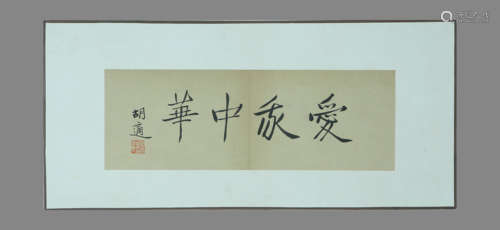 愛我中華
胡適